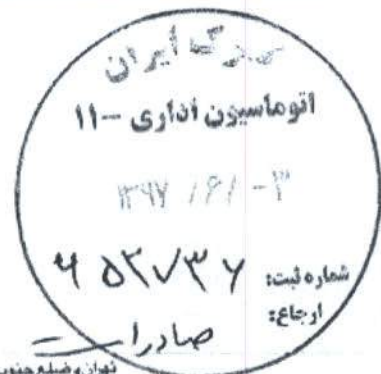 گمرک ایران
اتوماسیون اداری -۱۱
۱۳۹۷ /۶/ -۳
شماره ثبت: ۶۵۳۷۳۶
ارجاع:
صادرات
تهران، ضلع جنوب